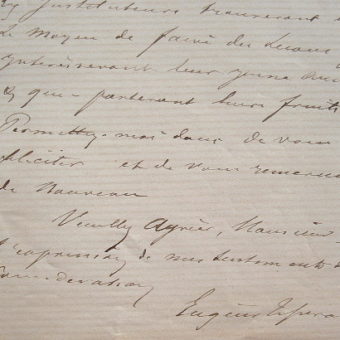 instituteurs trouveront
le moyen de faire des leçons
intéresseront leur jeune
& que porteront leurs fruits
Permettez-moi donc de vous
féliciter et de vous remercier
de nouveau
Veuillez Agréer, Monsieur
l'expression de mes sentiments
Considération
Eugène